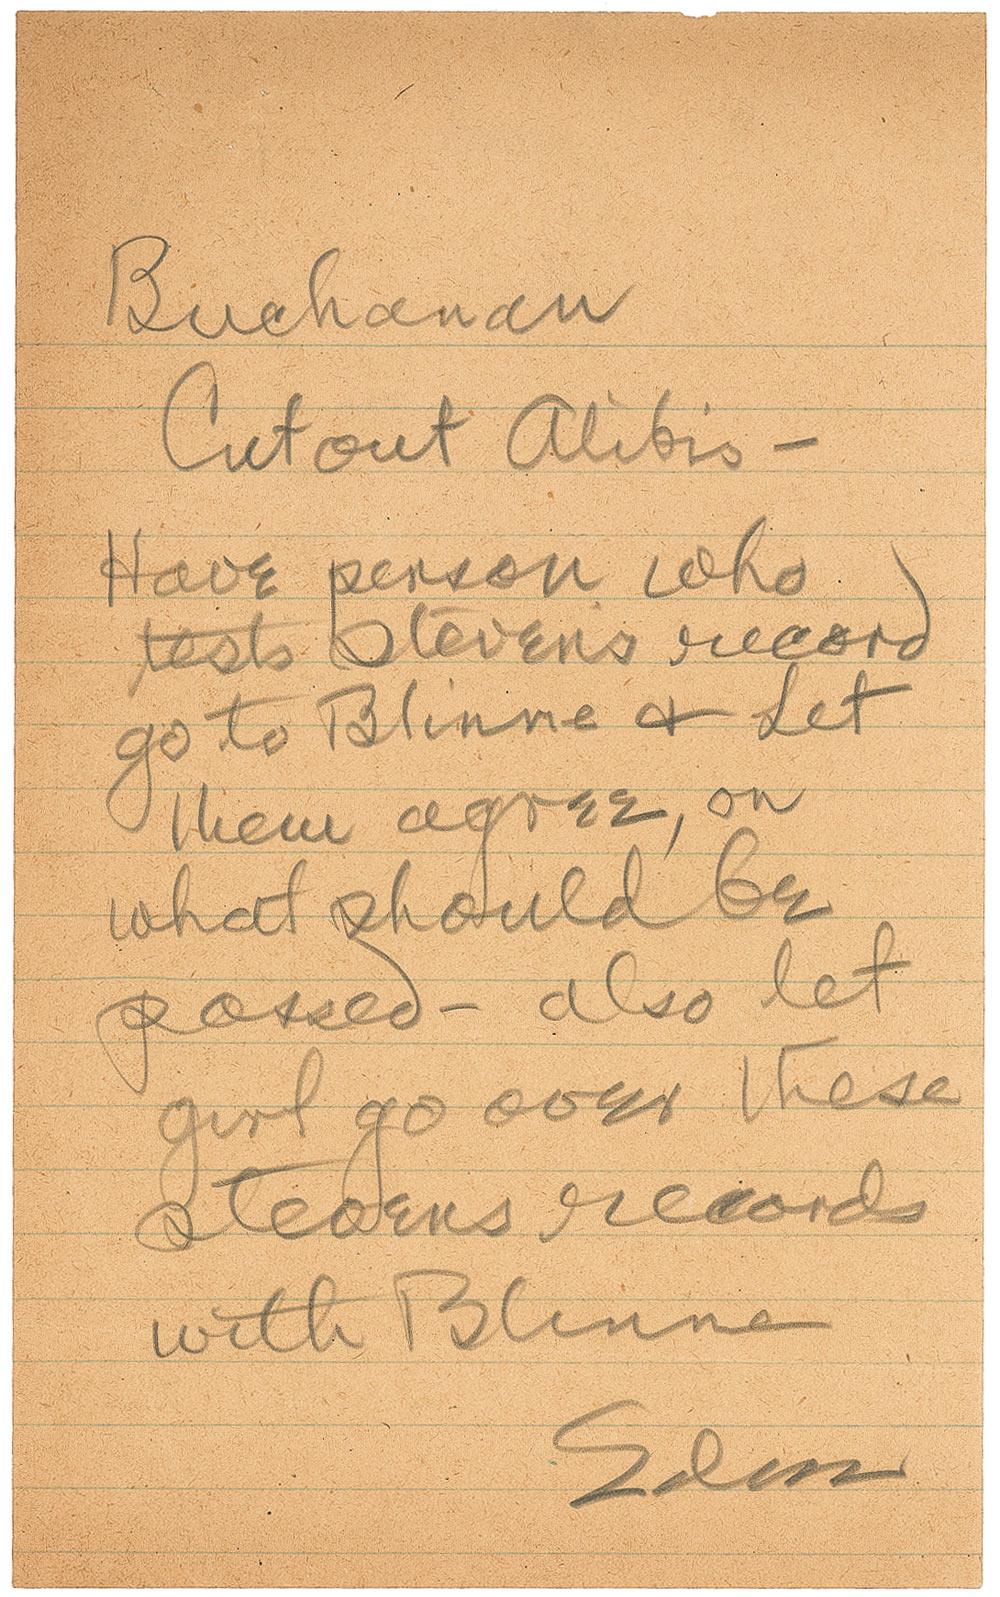 Buchanan
Cut out Alibis -
Have person who
tests Stevens record
go to Blinne & Let
them agree, on
what should be
passed - also let
girl go over these
Stevens records
with Blinne
Edison